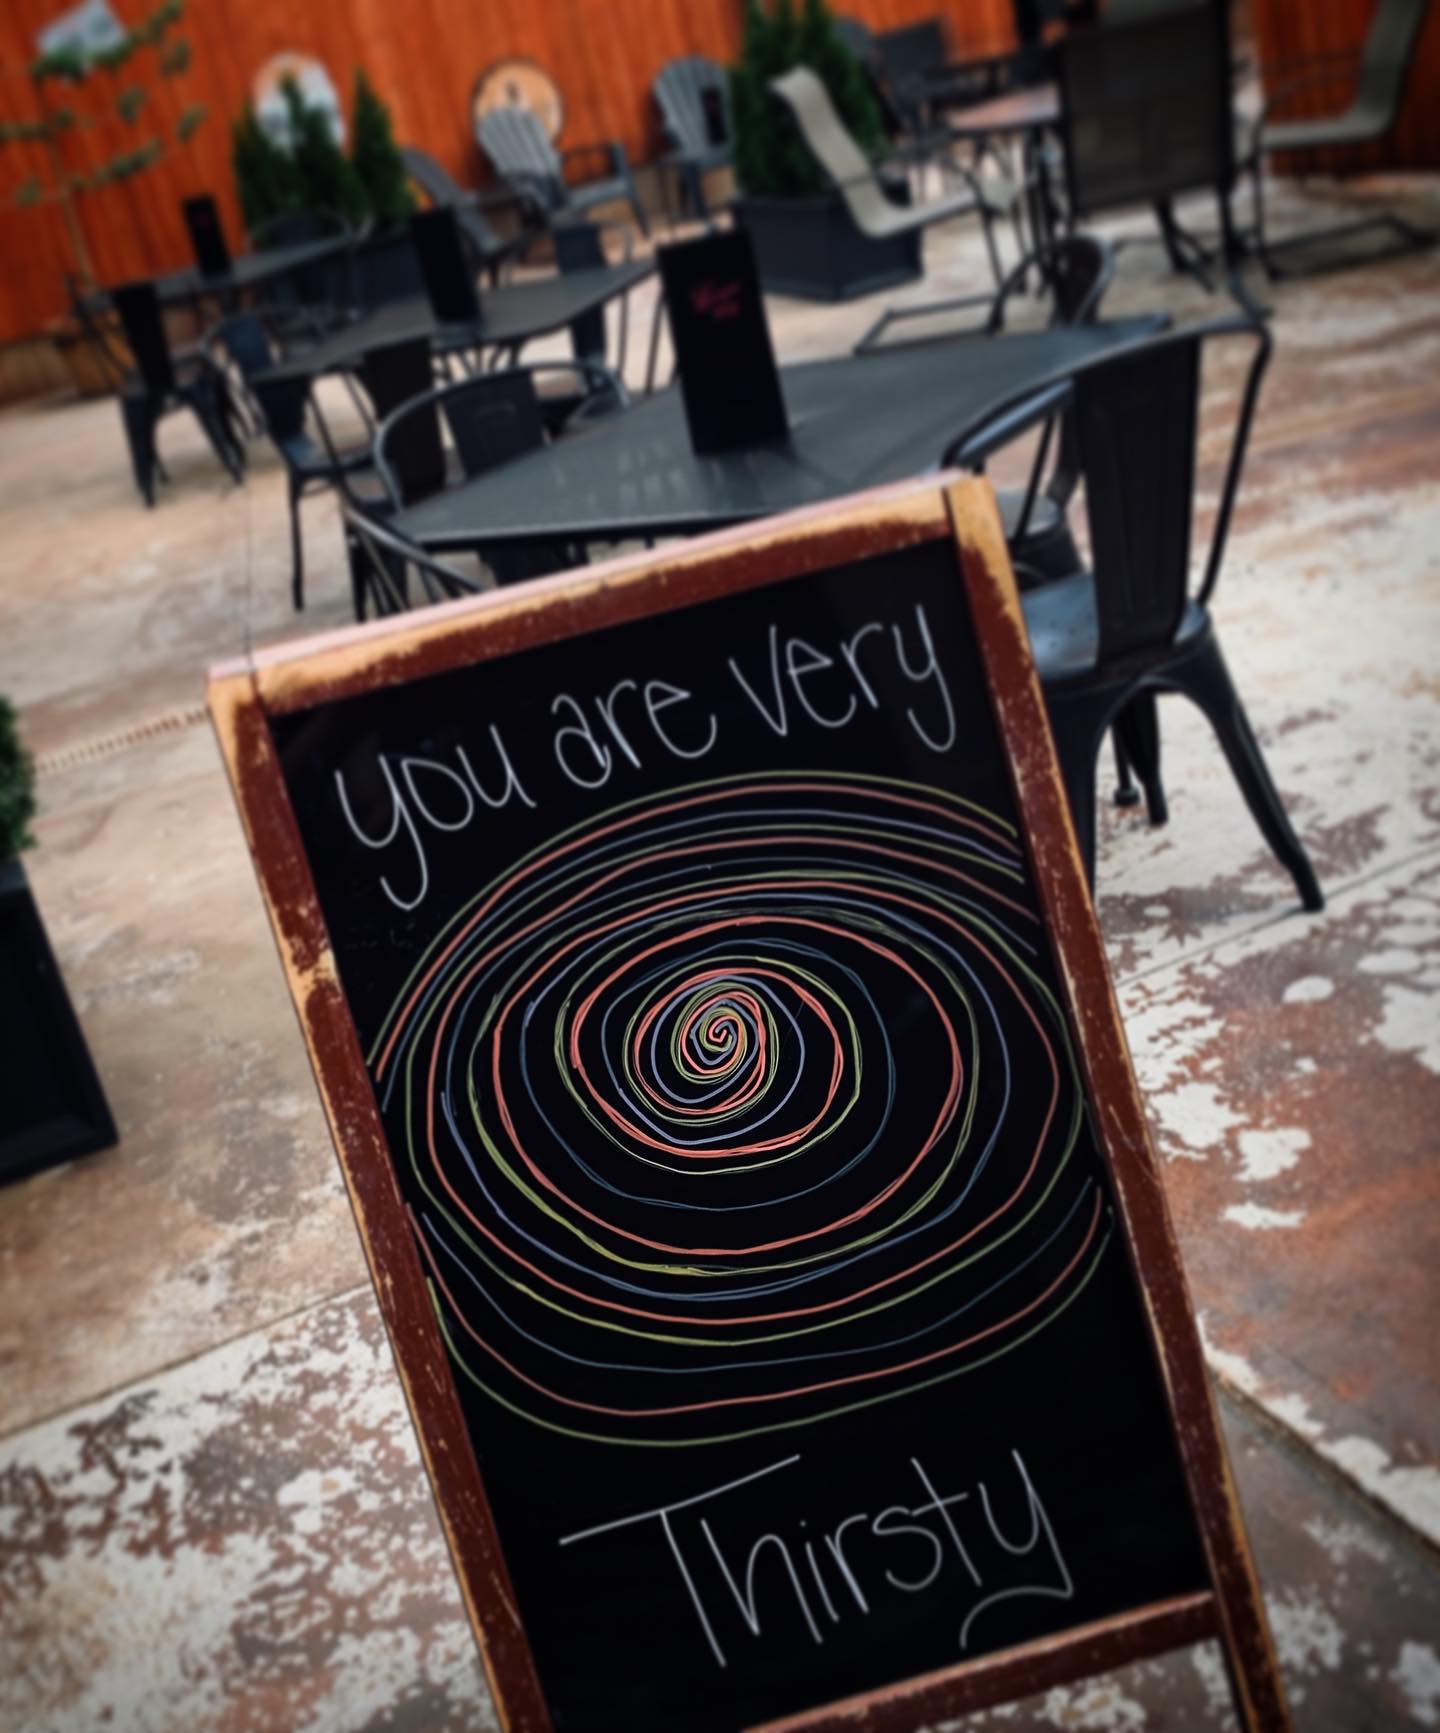 you are very
Thirsty